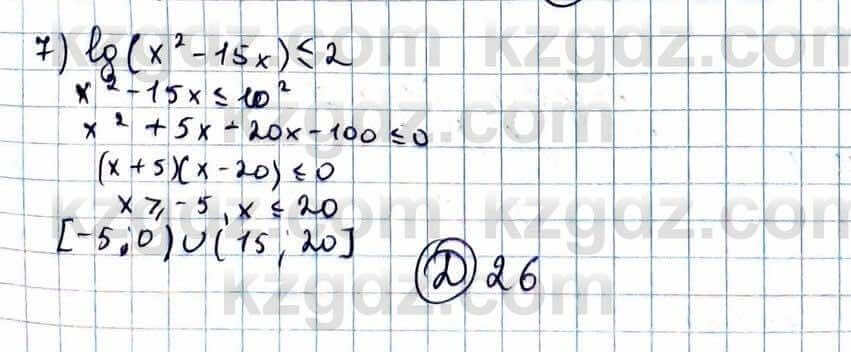 7) lg(x² - 15x) ≤ 2
x² - 15x ≤ 10²
x² + 5x - 20x - 100 ≤ 0
(x + 5)(x - 20) ≤ 0
x ⩾ -5, x ≤ 20
[-5; 0) ∪ (15; 20]
Д 26
kzgdz.com kzgdz.com
kzgdz.com
kzgdz.com kzgdz.com
kzgdz.com